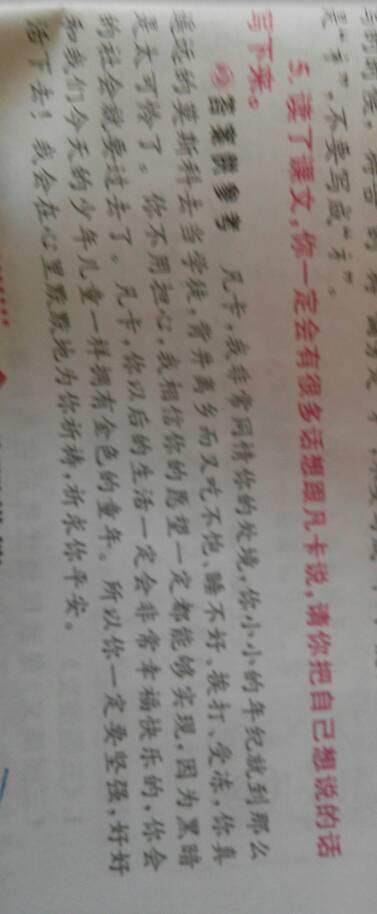 是“礻”,不要写成“衤”。
5. 读了课文,你一定会有很多话想跟凡卡说,请你把自己想说的话
写下来。
答案供参考 凡卡,我非常同情你的处境,你小小的年纪就到那么
遥远的莫斯科去当学徒,背井离乡而又吃不饱、睡不好、挨打、受冻,你真
是太可怜了。你不用担心,我相信你的愿望一定都能够实现,因为黑暗
的社会就要过去了。凡卡,你以后的生活一定会非常幸福快乐的,你会
和我们今天的少年儿童一样拥有金色的童年。所以你一定要坚强,好好
活下去!我会在心里默默地为你祈祷,祈求你平安。